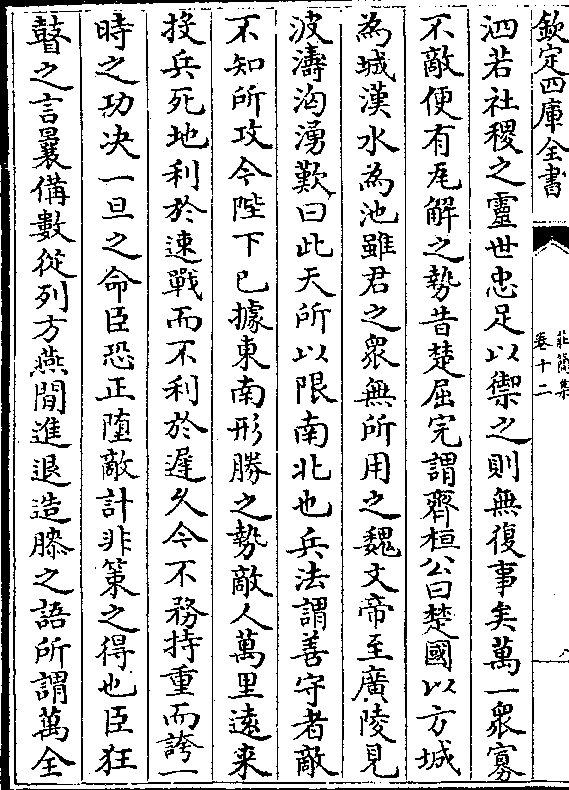 欽定四庫全書
莊簡集
卷十二
泗若社稷之靈世忠足以禦之則無復事矣萬一衆寡
不敵便有瓦解之勢昔楚屈完謂齊桓公曰楚國以方城
為城漢水為池雖君之衆無所用之魏文帝至廣陵見
波濤洶湧歎曰此天所以限南北也兵法謂善守者敵
不知所攻今陛下已據東南形勝之勢敵人萬里遠来
投兵死地利於速戰而不利於遲久今不務持重而誇一
時之功决一旦之命臣恐正墮敵計非策之得也臣狂
瞽之言曩備數從列方燕間進退造膝之語所謂萬全